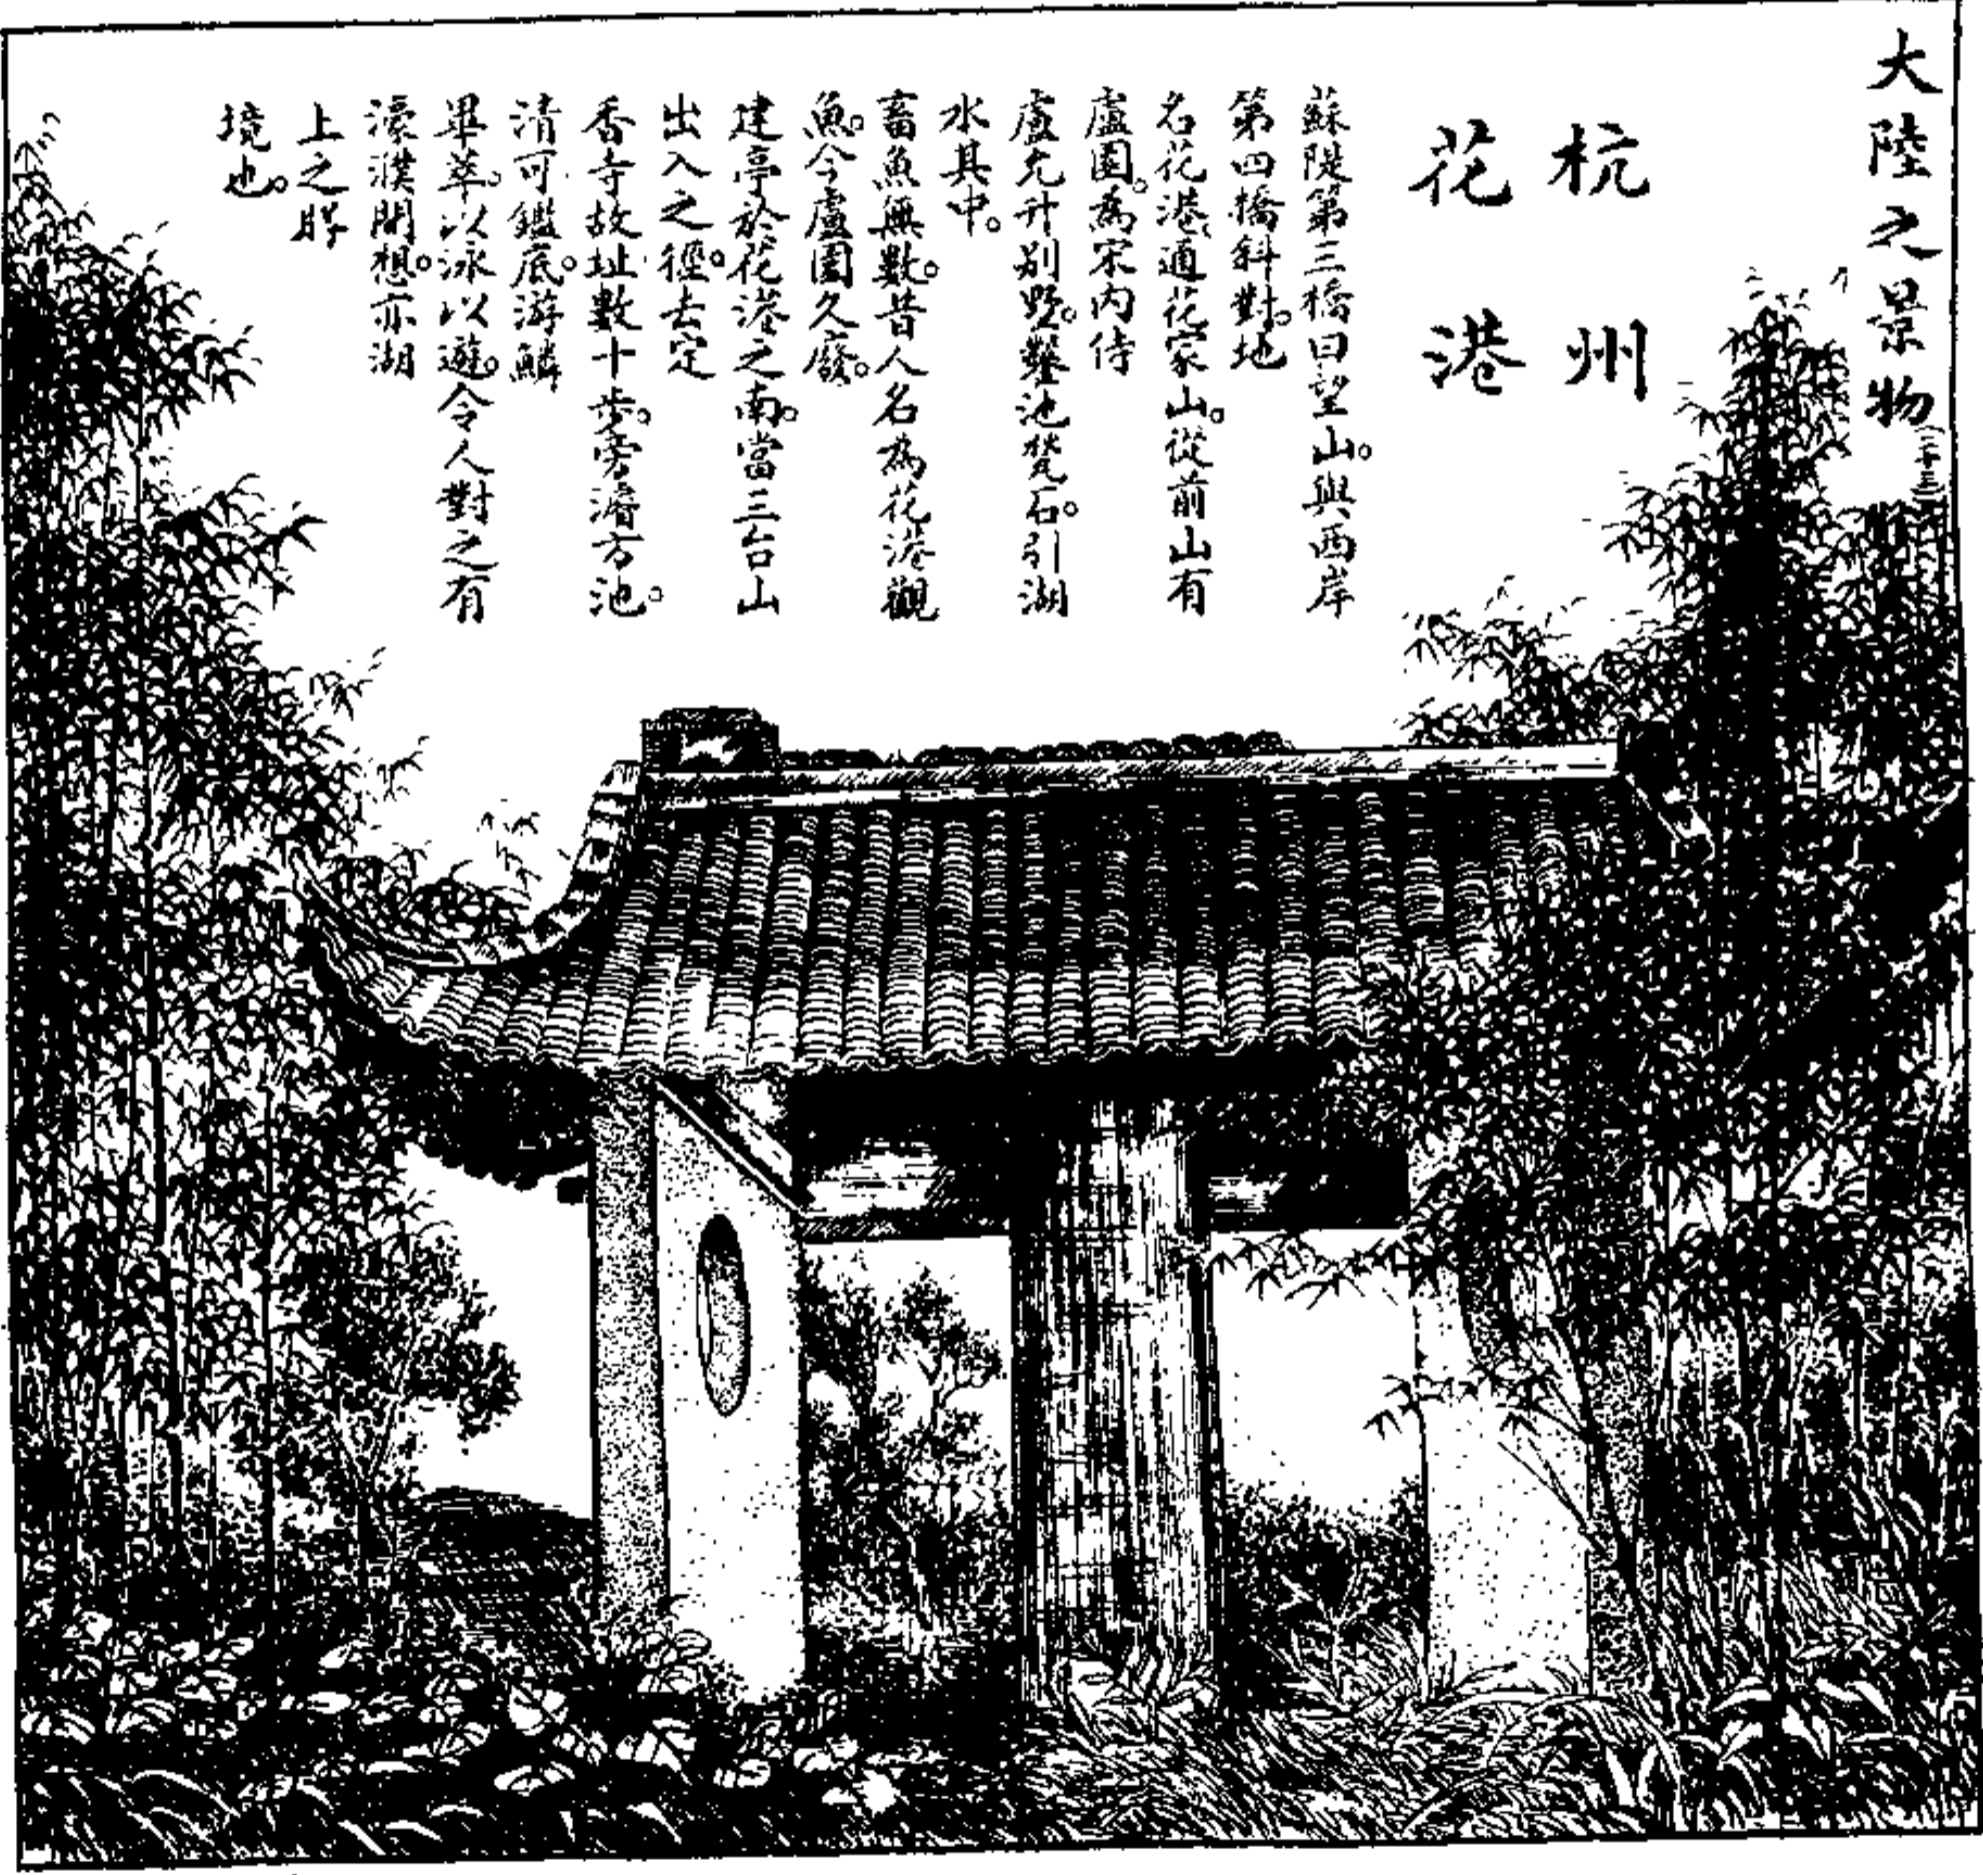 大陸之景物(二十三)
杭州
花港
蘇隄第三橋曰望山。與西岸
第四橋斜對。地
名花港、通花家山。從前山有
盧園。為宋内侍
盧允升别墅。鑿池甃石。引湖
水其中。
畜魚無數。昔人名為花港觀
魚。今盧園久廢。
建亭於花港之南。當三台山
出入之徑。去定
香寺故址數十步。旁濬方池。
清可鑑底。游鱗
畢萃。以泳以遊。令人對之有
濠濮間想。亦湖
上之勝
境也。